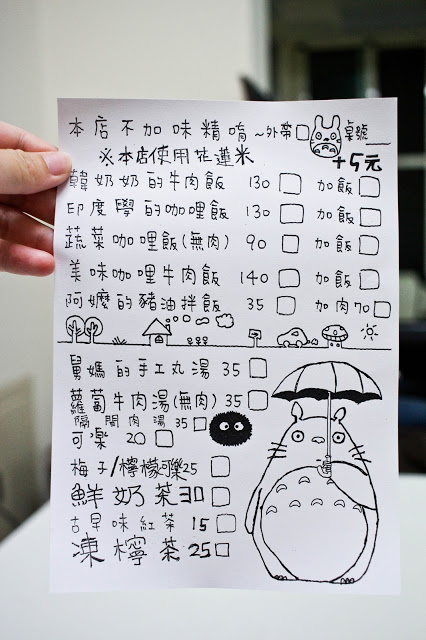 本店不加味精唷~外帶□ 桌號__
※本店使用花蓮米 +5元
韓奶奶的牛肉飯 130 □ 加飯□
印度學的咖哩飯 130 □ 加飯□
蔬菜咖哩飯(無肉) 90 □ 加飯□
美味咖哩牛肉飯 140 □ 加飯□
阿嬤的豬油拌飯 35 □ 加肉70□
舅媽的手工丸湯 35 □
蘿蔔牛肉湯(無肉) 35 □
隔間肉湯 35 □
可樂 20 □
梅子/檸檬可樂25 □
鮮奶茶30 □
古早味紅茶 15 □
凍檸茶 25 □